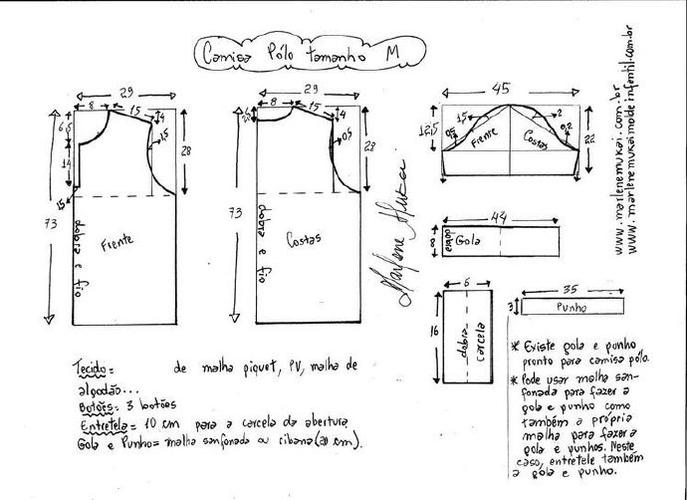 Camisa Pólo tamanho M
29
8
15
4
6,5
1,5
28
14
1,5
73
dobra e fio
Frente
29
8
15
4
0,5
28
73
dobra e fio
Costas
Marlene Mukai
45
12,5
0,5
1,5
2
0,2
Frente
Costas
22
44
8
dobra
Gola
6
16
dobra
carcela
35
3
Punho
www.marlenemukai.com.br
www.marlenemukaimodainfantil.com.br
Tecido= de malha piquet, PV, malha de
algodão...
Botões= 3 botões
Entretela= 10 cm para a carcela da abertura
Gola e Punho= malha sanfonada ou ribana (20 cm).
* Existe gola e punho
pronto para camisa pólo.
* Pode usar malha san-
fonada para fazer a
gola e punho como
também a própria
malha para fazer a
gola e punhos. Neste
caso, entretele também
a gola e punho.